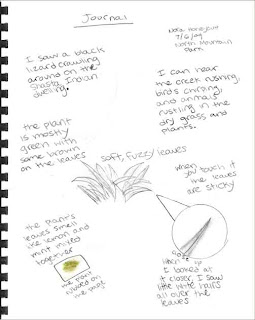 Journal
7/6/09
North Mountain
Park
I saw a black
lizard crawling
around on the
Shasta Indian
dwelling.
I can hear
the creek rushing,
birds chirping,
and animals
rustling in the
dry grass and
plants.
the plant
is mostly
green with
some brown
on the leaves
soft, fuzzy leaves
when you touch it
the leaves
are sticky
the plant's
leaves smell
like lemon and
mint mixed
together
the plant
rubbed on
the page
When
I looked at
it closer, I saw
little white hairs
all over the
leaves